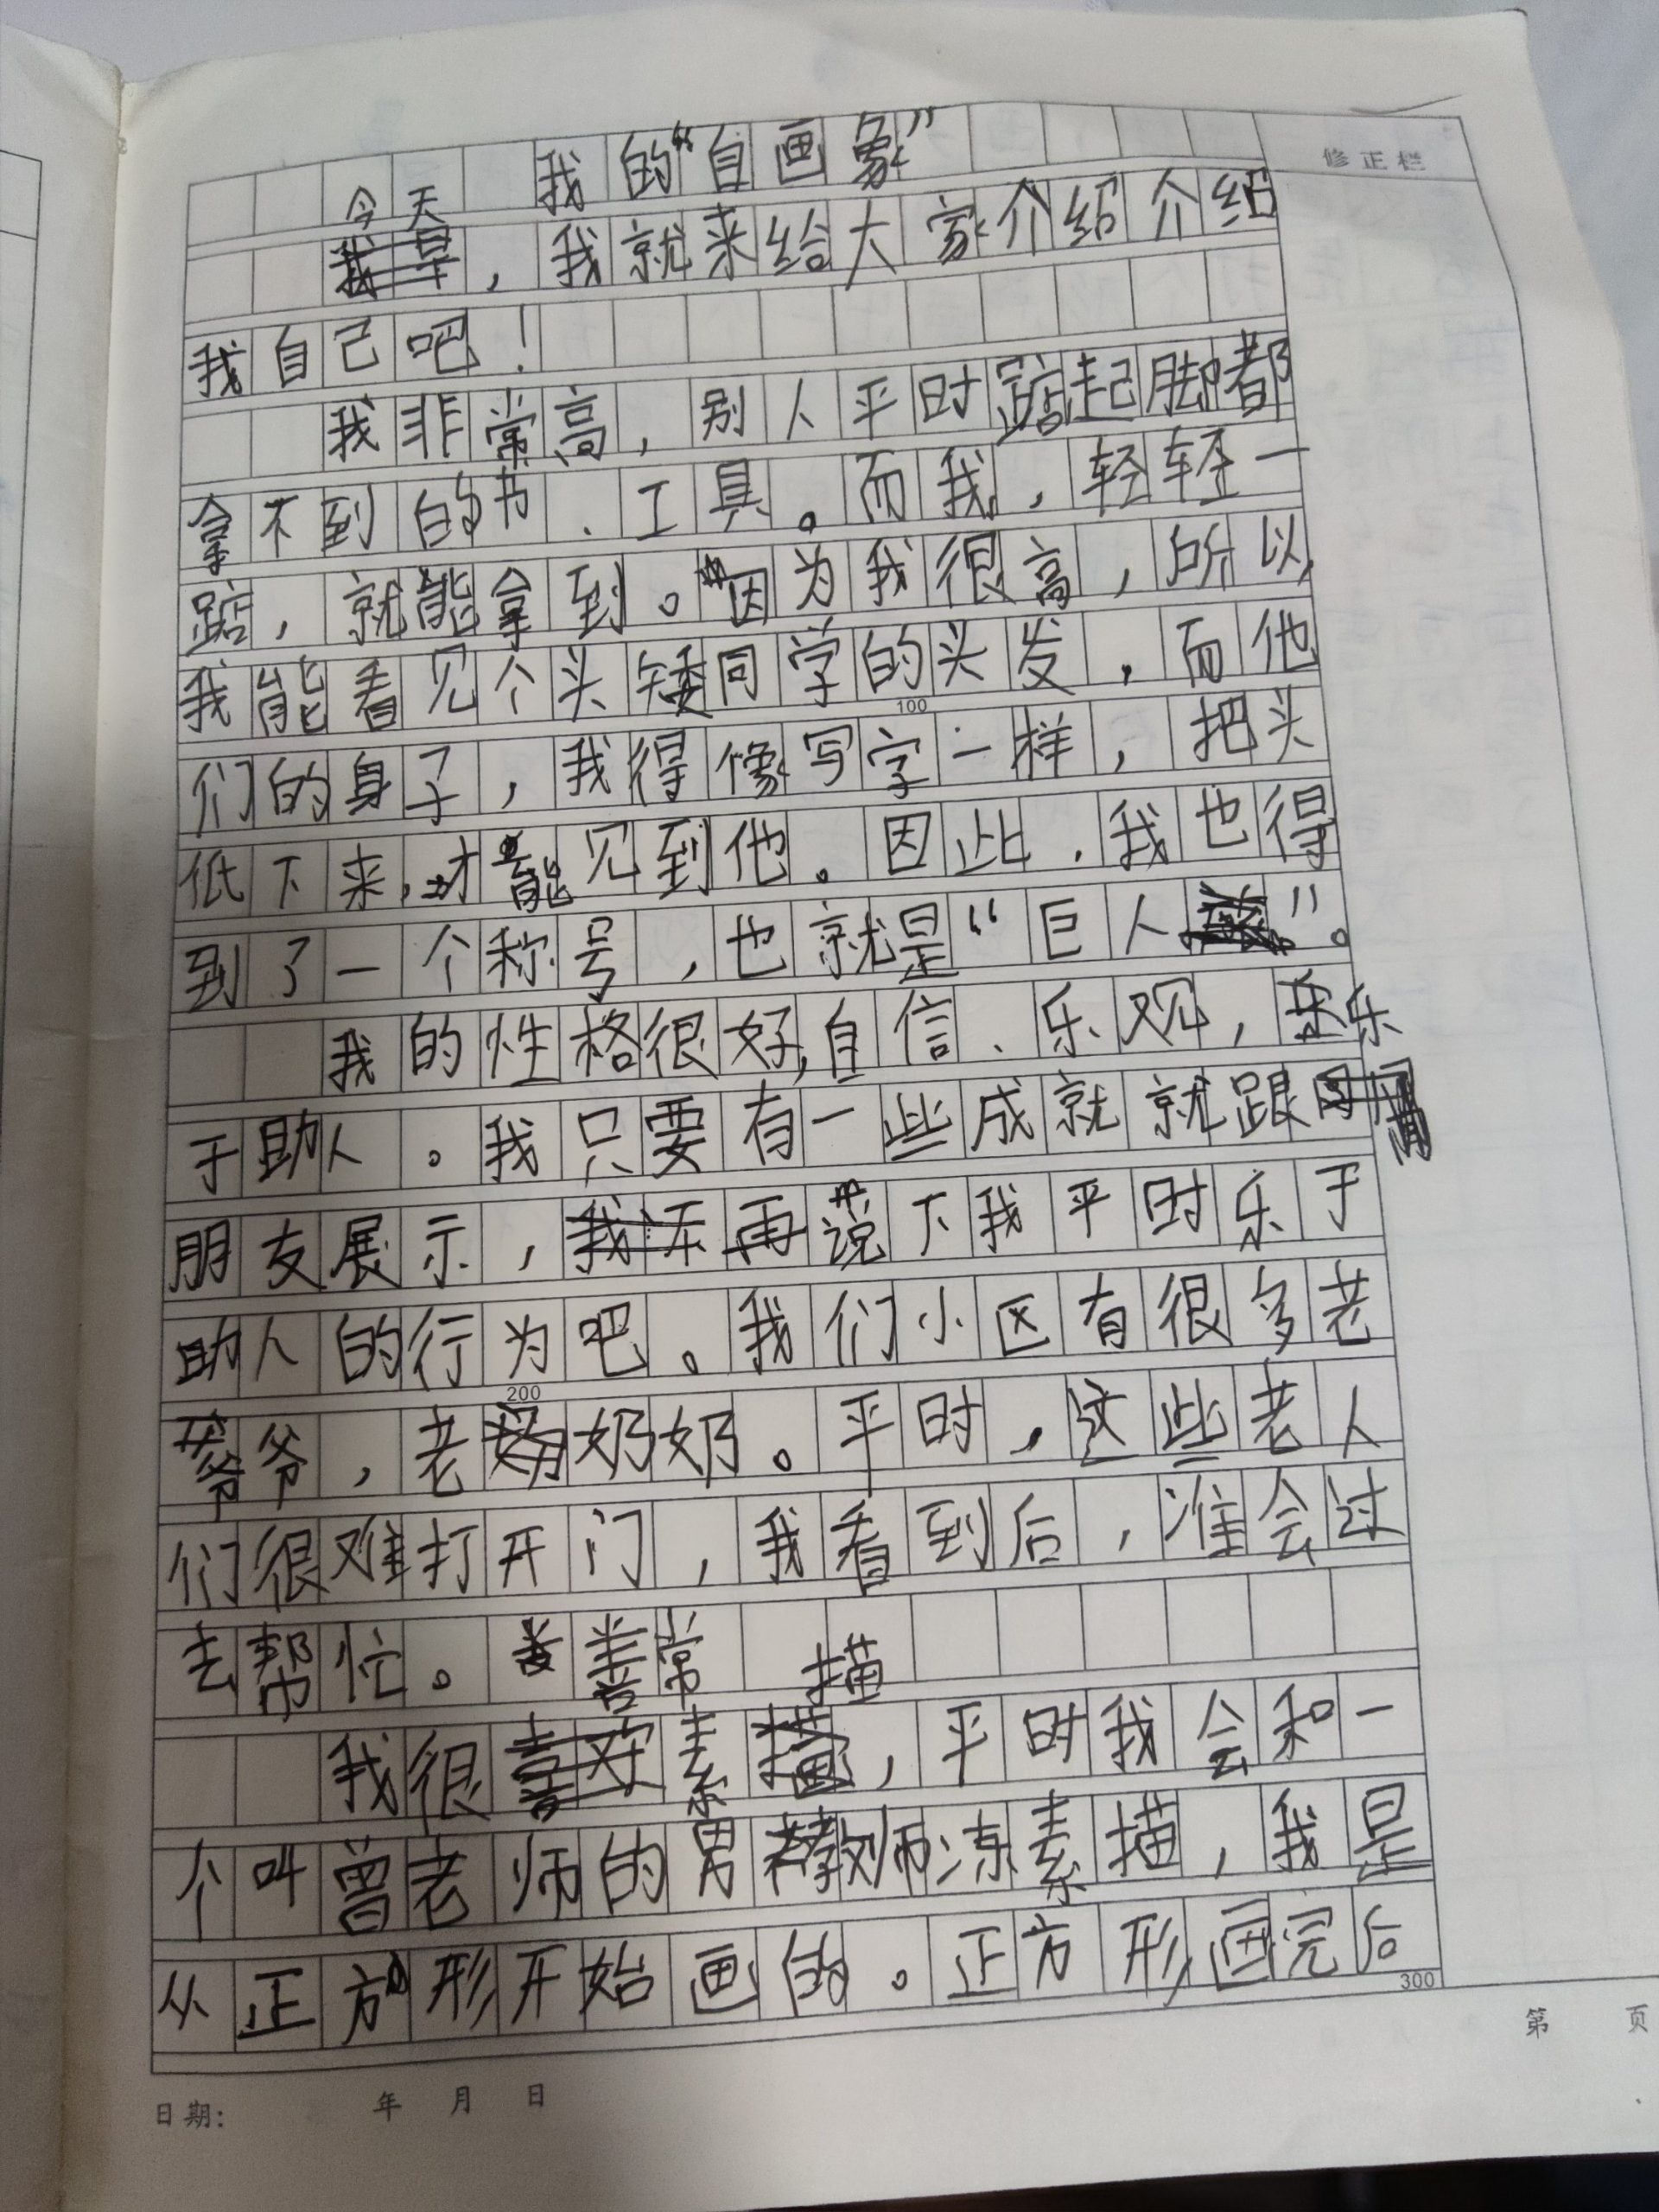 我的“自画象”
修正栏
今天
我是，我就来给大家介绍介绍
我自己吧！
我非常高，别人平时踮起脚都
拿不到的书、工具。而我，轻轻一
踮，就能拿到。因为我很高，所以
我能看见个头矮同学的头发，而他
100
们的身子，我得像写字一样，把头
低下来，才能见到他。因此，我也得
到了一个称号，也就是“巨人”。
我的性格很好，自信、乐观，乐
于助人。我只要有一些成就就跟
朋友展示，我还再说下我平时乐于
助人的行为吧。我们小区有很多老
200
爷爷，老奶奶。平时，这些老人
们很难打开门，我看到后，准会过
去帮忙。善常 描
我很喜欢素描，平时我会和一
个叫曾老师的男教师练素描，我是
从正方形开始画的。正方形画完后
300
第 页
日期： 年 月 日